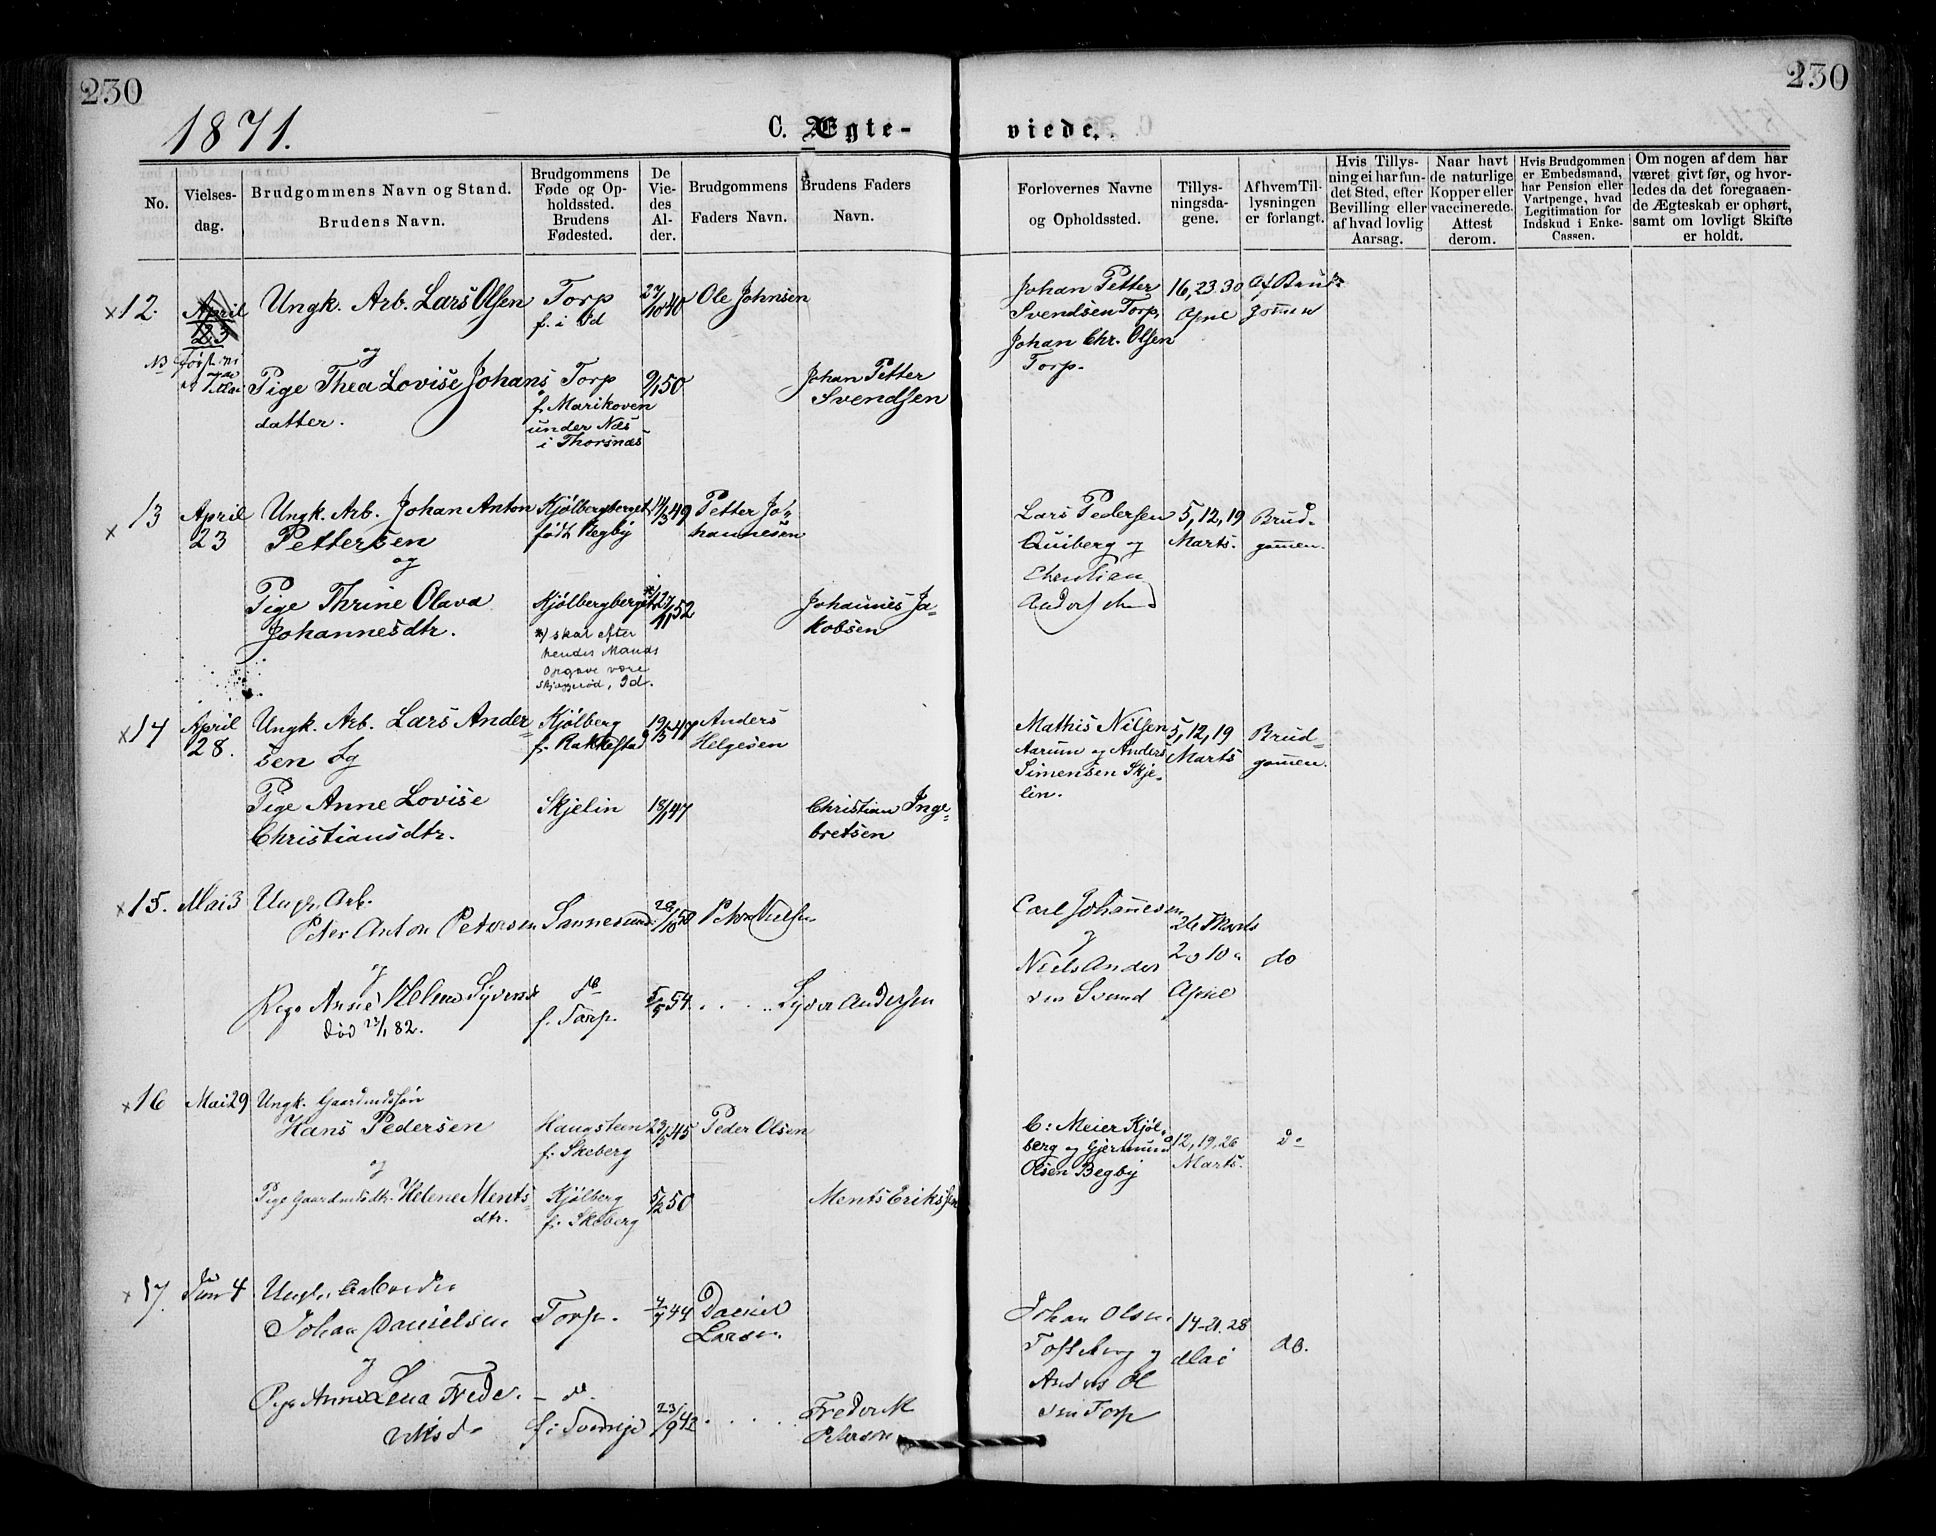 230
230
1871.
C. Ægte-
viede.
No.
Vielses-
dag.
Brudgommens Navn og Stand.
Brudens Navn.
Brudgommens
Føde og Op-
holdssted.
Brudens
Fødested.
De
Vie-
des
Al-
der.
Brudgommens
Faders Navn.
Brudens Faders
Navn.
Forlovernes Navne
og Opholdssted.
Tillys-
ningsda-
gene.
Af hvem Til-
lysningen
er forlangt.
Hvis Tillys-
ning ei har fun-
det Sted, efter
Bevilling eller
af hvad lovlig
Aarsag.
Naar havt
de naturlige
Kopper eller
vaccinerede.
Attest
derom.
Hvis Brudgommen
er Embedsmand,
har Pension eller
Vartpenge, hvad
Legitimation for
Indskud i Enke-
Cassen.
Om nogen af dem har
været givt før, og hvor-
ledes da det foregaaen-
de Ægteskab er ophørt,
samt om lovligt Skifte
er holdt.
x 12.
April
23
NB
Ungk. Arb. Lars Olsen
og
Pige Thea Lovise Johans
datter.
Torp
f. i Id
Torp
f. Marikoven
under Næs
i Thorsnæs
27/10 40
9/1 50
Ole Johnsen
Johan Petter
Svendsen
Johan Petter
Svendsen Torp,
Johan Chr. Olsen
Torp.
16, 23. 30
April
Af Brud-
gomen
x 13
April
23
Ungk. Arb. Johan Anton
Pettersen
og
Pige Thrine Olava
Johannesdtr.
Kjølbergberget
født Begby
Kjølbergberget
*) skal efter
hendes Mands
Opgave være
Skjøggerød, Id.
14/3 49
27/11 52
Petter Jo-
hannesen
Johannes Ja-
kobsen
Lars Pedersen
Quiberg og
Christian
5, 12, 19
Marts.
Brud-
gomen.
x 14
April
28.
Ungk. Arb. Lars Ander-
sen og
Pige Anne Lovise
Christiansdtr.
Kjølberg
f. Rakkestad
Skjelin
19/5 47
18/1 47
Anders
Helgesen
Christian Inge-
bretsen
Mathis Nilsen
Aarum og Anders
Simensen Skje-
lin.
5, 12, 19
Marts
Brud-
gomen.
x 15.
Mai 3
Ungk. Arb.
Peter Anton Petersen
og
Pige Anne Helene Syvers
død 23/1 82.
Sannesund
do
f. Torp.
28/10 50
5/5 54.
Peter Nielsen
Syver Andersen
Carl Johannesen
og
Niels Ander
sen
26 Marts
2 o 10 o
April
do
x 16
Mai 29
Ungk. Gaardmdssøn
Hans Pedersen
og
Pige Gaardmdsdtr. Helene Ments-
dtr.
Haugsteen
f. Skeberg
Kjølberg
f. Skeberg
23/5 45
5/2 50
Peder Olsen
Ments Eriksen
C: Meier Kjøl-
berg og Gjermund
Olsen Begby
12, 19, 26
Marts.
do
x 17.
Juni 4
Ungk. Arbeider
Johan Danielsen
og
Pige Anne Lena Frede-
riksd.
Torp.
- do.
f. i Sverrige
4/7 44
23/9 42
Daniel
Larsen
Frederik
Peterson
Johan Olsen
Tofteberg og
Anders Ol
sen Torp
14-21. 28
Mai
do.